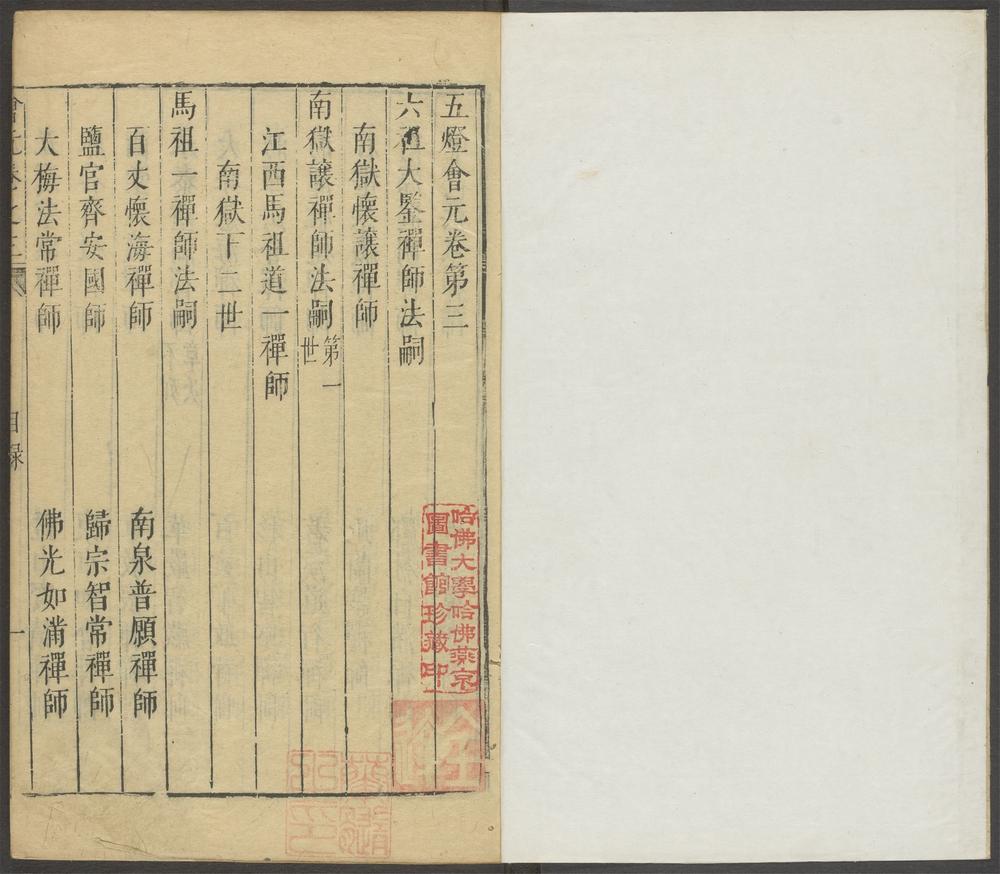 五燈會元卷第三
六祖大鑒禪師法嗣
南獄懷讓禪師
南獄讓禪師法嗣第一世
江西馬祖道一禪師
南獄下二世
馬祖一禪師法嗣
百丈懷海禪師 南泉普願禪師
鹽官齊安國師 歸宗智常禪師
大梅法常禪師 佛光如滿禪師
會元卷之三 目録 一
哈佛大學哈佛燕京
圖書館珍藏印